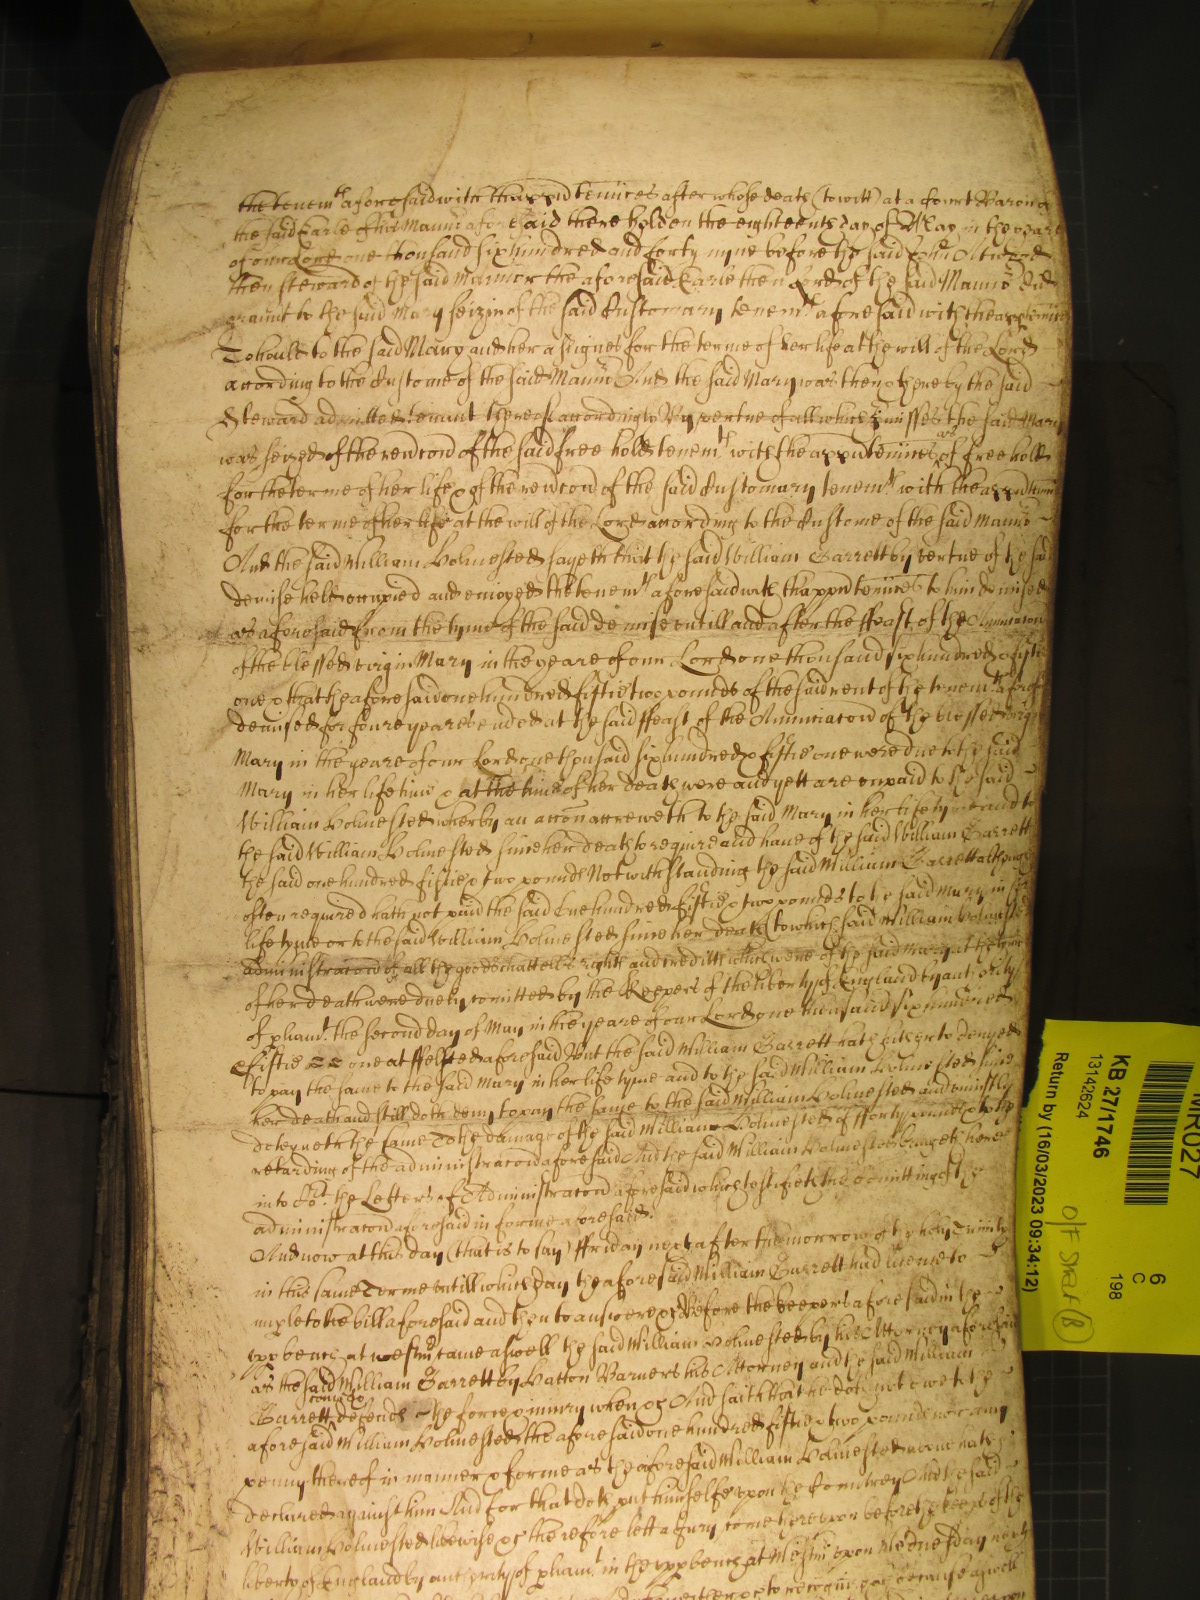 the tenemt aforesaid with thappurtenñces after whose death (to witt) at a Court Baron of
the said Earle of his Mannor aforesaid there holden the eighteenth day of May in the yeare
of our Lord one thousand six hundred and forty nyne before the said John Attwood
then steward of the said Mannor the aforesaid Earle then Lord of the said Mannor did
graunt to the said Mary seizin of the said Customary tenemt aforesaid with thappurtennces
To hould to the said Mary and her assignes for the terme of her life at the will of the Lord
according to the Custome of the said Mannor And the said Mary was then & there by the said
Steward admitted tenant thereof accordingly By vertue of all which pmisses the said Mary
was seized of the revercon of the said free hold tenemt with thappurtennces as of free hold
for the terme of her life & of the revercon of the said Customary tenemt with thappurtennces
for the terme of her life at the will of the Lord according to the Custome of the said Mannor
And the said William Holmested sayeth that the said William Garrett by vertue of the said
demise held occupied and enioyed the tenemts aforesaid with thappurtennces to him demised
as aforesaid from the tyme of the said demise untill and after the ffeast of the Annunciacon
of the blessed virgin Mary in the yeare of our Lord one thousand six hundred & fiftie
one & that the aforesaid one hundred fiftie two pounds of the said rent of the tenemts aforesaid
demised for foure yeares ended at the said ffeast of the Annunciacon of the blessed virgin
Mary in the yeare of our Lord one thousand six hundred & fiftie one were due to the said
Mary in her life time & at the time of her death were and yett are unpaid to the said
William Holmested wherby an accon accreweth to the said Mary in her life tyme and to
the said William Holmested since her death to require and have of the said William Garrett
the said one hundred fiftie & two pounds Notwithstanding the said William Garrett although
often required hath not paid the said One hundred fiftie & two pounds to the said Mary in her
life tyme or to the said William Holmested since her death (to which said William Holmested
administracon of all the goods chattells rights and creditts which were of the said Mary at the tyme
of her death were duely comitted by the Keepers of the liberty of England by authority
of pliamt the second day of May in the yeare of our Lord one thousand six hundred
& fiftie one at ffelsted aforesaid But the said William Garrett hath hitherto denyed
to pay the same to the said Mary in her life tyme and to the said William Holmested since
her death and still doth deny to pay the same to the said William Holmested and uniustly
deteyneth the same To the damage of the said William Holmested of fforty pounds & to the
retarding of the administracon aforesaid And the said William Holmested bringeth here
into Co't the Letters of Administracon aforesaid which testifieth the comitting of the
administracon aforesaid in forme aforesaid.
And now at this day (that is to say) ffriday next after the morrow of the holy Trinity
in this same Terme untill which day the aforesaid William Garrett had licence to
imple to the bill aforesaid and then to answere &c Before the keepers aforesaid in the
upp bench at westm came aswell the said William Holmested by his Attorney aforesaid
as the said William Garrett by Hatton Barners his Attorney and the said William
Garrett defends the force & iniury when &c And saith that he doth not owe to the
aforesaid William Holmested the aforesaid one hundred fiftie & two pounds nor any
penny thereof in manner & forme as the aforesaid William Holmested above hath
declared against him And for that doth put himselfe upon the Countrey And the said
William Holmested likewise &c therefore lett a Jury come hereupon before the keepers of the
liberty of England by authority of pliamt in the upp bench at Westm upon Wednesday next
KB 27/1746
13142624
Return by (16/03/2023 09:34:12)
6
C
198